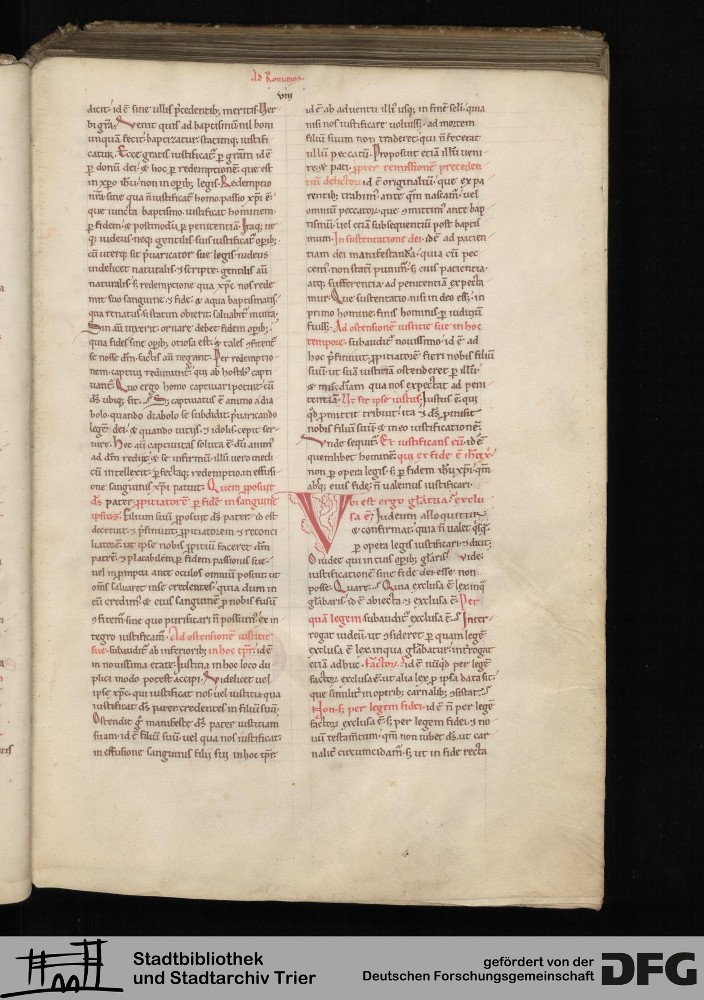 Ad Romanos.
viii
dicit. id ē sine ullis p̄cedentib; meritis. Ver
bi grā. Venit quis ad baptismū nil boni
unquā fecit. baptizatur. statimq; iustifi
catur. Ecce gratis iustificat' p grām id ē
p donū dei. & hoc p redemptionē que est
in xp̄o ih̄u. non in opib; legis. Redemptio
n̄ra. sine qua n̄ iustificat' homo. passio xp̄i ē.
que iuncta baptismo. iustificat hominem
p fidem. & postmodū p penitentiā. Itaq; ne
q; iudeus neq; gentilis suis iustificat' opib;.
cū uterq; sit p̄uaricator sue legis. iudeus
uidelicet naturalis & scripte. gentilis aū
naturalis. s; redemptione qua xp̄c nos rede
mit suo sanguine & fide & aqua baptismatis.
qua renatus si statim obierit. saluabit' inuita.
Sin aū uixerit. ornare debet fidem opib;.
quia fides sine opib; otiosa est. & tales ꝯfitent'
se nosse dm̄. factis aū negant. Per redemptio
nem. captiui redimunt'. qui ab hostib; capti
uant'. Quo ergo homo captiuari potuit. cū
ds̄ ubiq; sit. Sꝫ captiuatus ē animo a dia
bolo. quando diabolo se subdidit p̄uaricando
legē dei. & quando uitiis & idolis cepit ser
uire. Hec aū captiuitas soluta ē. dū anim'
ad dm̄ rediit. & se infirmū. illū uero medi
cū intellexit. p fectaq; redemptio. in effusi
one sanguinis xp̄i patuit. Quem p̄posuit
ds̄ pater p̄pitiatorē p fidē in sanguine
ipsius. Filium suū p̄posuit ds̄ pater. id est
decreuit & p̄finiuit p̄pitiatorem & reconci
liatorē. ut ipse nobis p̄pitiū faceret dm̄
patrē & placabilem p fidem passionis sue.
uel in p̄mptu ante oculos omniū posuit. ut
om̄s saluaret in se credentes. quia dum in
eū credim' & eius sanguinē p nobis fusū
ꝯfitem'. sine quo purificari n̄ possum'. ex in
tegro iustificam'. Ad ostensionē iustitie
sue. subaudit' ab inferiorib; in hoc tp̄r. id ē
in nouissima etate. Iustitia in hoc loco du
plica modo potest accipi. Videlicet uel
ipse xp̄c. qui iustificat nos. uel iustitia qua
iustificat ds̄ pater credentes in filiū suū.
Ostendit g̊ manifeste ds̄ pater iustitiam
suam. id ē filiū suū. uel qua nos iustificat.
in effusione sanguinis filii sui in hoc tp̄r.
id ē ab aduentu illi' usq; in finē scli. quia
nisi nos iustificare uoluiss;. ad mortem
filiū suum non traderet. qui n̄ fecerat
ullū peccatū. Proposuit etiā illū ueni
re. & pati. ꝓpter remissionē preceden
tiū delictor. id ē originaliū. que ex pa
rentib; trahim' ante qm̄ nascam'. uel
omniū peccator. que ꝯmittim' ante bap
tismū. uel etiā subsequentiū post baptis
mum. In sustentatione dei. idē ad patien
tiam dei manifestandā. quia cū pec
cem' non statī punim'. s; eius patientia.
atq; sufferentia. ad penitentiā expecta
mur. Que sustentatio. nisi in deo ess;. in
primo homine. finis hominis p iudiciū
fuiss;. Ad ostensionē iustitie sue in hoc
tempore. subaudit' nouissimo. id ē ad
hoc p̄finiuit p̄pitiatorē fieri nobis filiū
suū. ut suā iustitiā ostenderet p illū.
& miscdiam qua nos expectat ad peni
tentiā. Ut sit ipse iustus. Iustus ē. qui
qd̄ p̄mittit tribuit. ita & ds̄ p̄misit
nobis filiū suū. & in eo iustificationē.
Unde sequit'. Et iustificans eū. id ē
quemlibet hominē. qui ex fide ē ih̄u xp̄i.
non p opera legis. s; p fidem ih̄u xp̄i. qm̄
absq; eius fide. n̄ ualemus iustificari.
Vbi est ergo gl̄atua? exclu
sa ē. Iudeum alloquitur
& confirmat. quia n̄ ualet qsq
p opera legis iustificari. & dicit.
O iudee qui in tuis opib; glaris. Vide
iustificationē sine fide dei esse non
posse. Quare. Quia exclusa ē lex inq̄
glabaris. id ē abiecta & exclusa ē. Per
quā legem subaudit' exclusa ē. Inter
rogat iudeū. ut ꝯsideret p quam legē
exclusa ē lex. in qua glabatur. interrogat
etiā adhuc. factor. id ē nūqd̄ per legē
factor exclusa ē. ut alia lex p ipsa data sit.
que similit' in opib; carnalib; ꝯsistat.
Non. s; per legem fidei. id ē n̄ per legē
factor exclusa ē. s; per legem fidei. & no
uū testam̄tum. qm̄ non iubet ds̄. ut car
nalit' circumcidam'. s; ut in fide recta
Stadtbibliothek
und Stadtarchiv Trier
gefördert von der
Deutschen Forschungsgemeinschaft
DFG